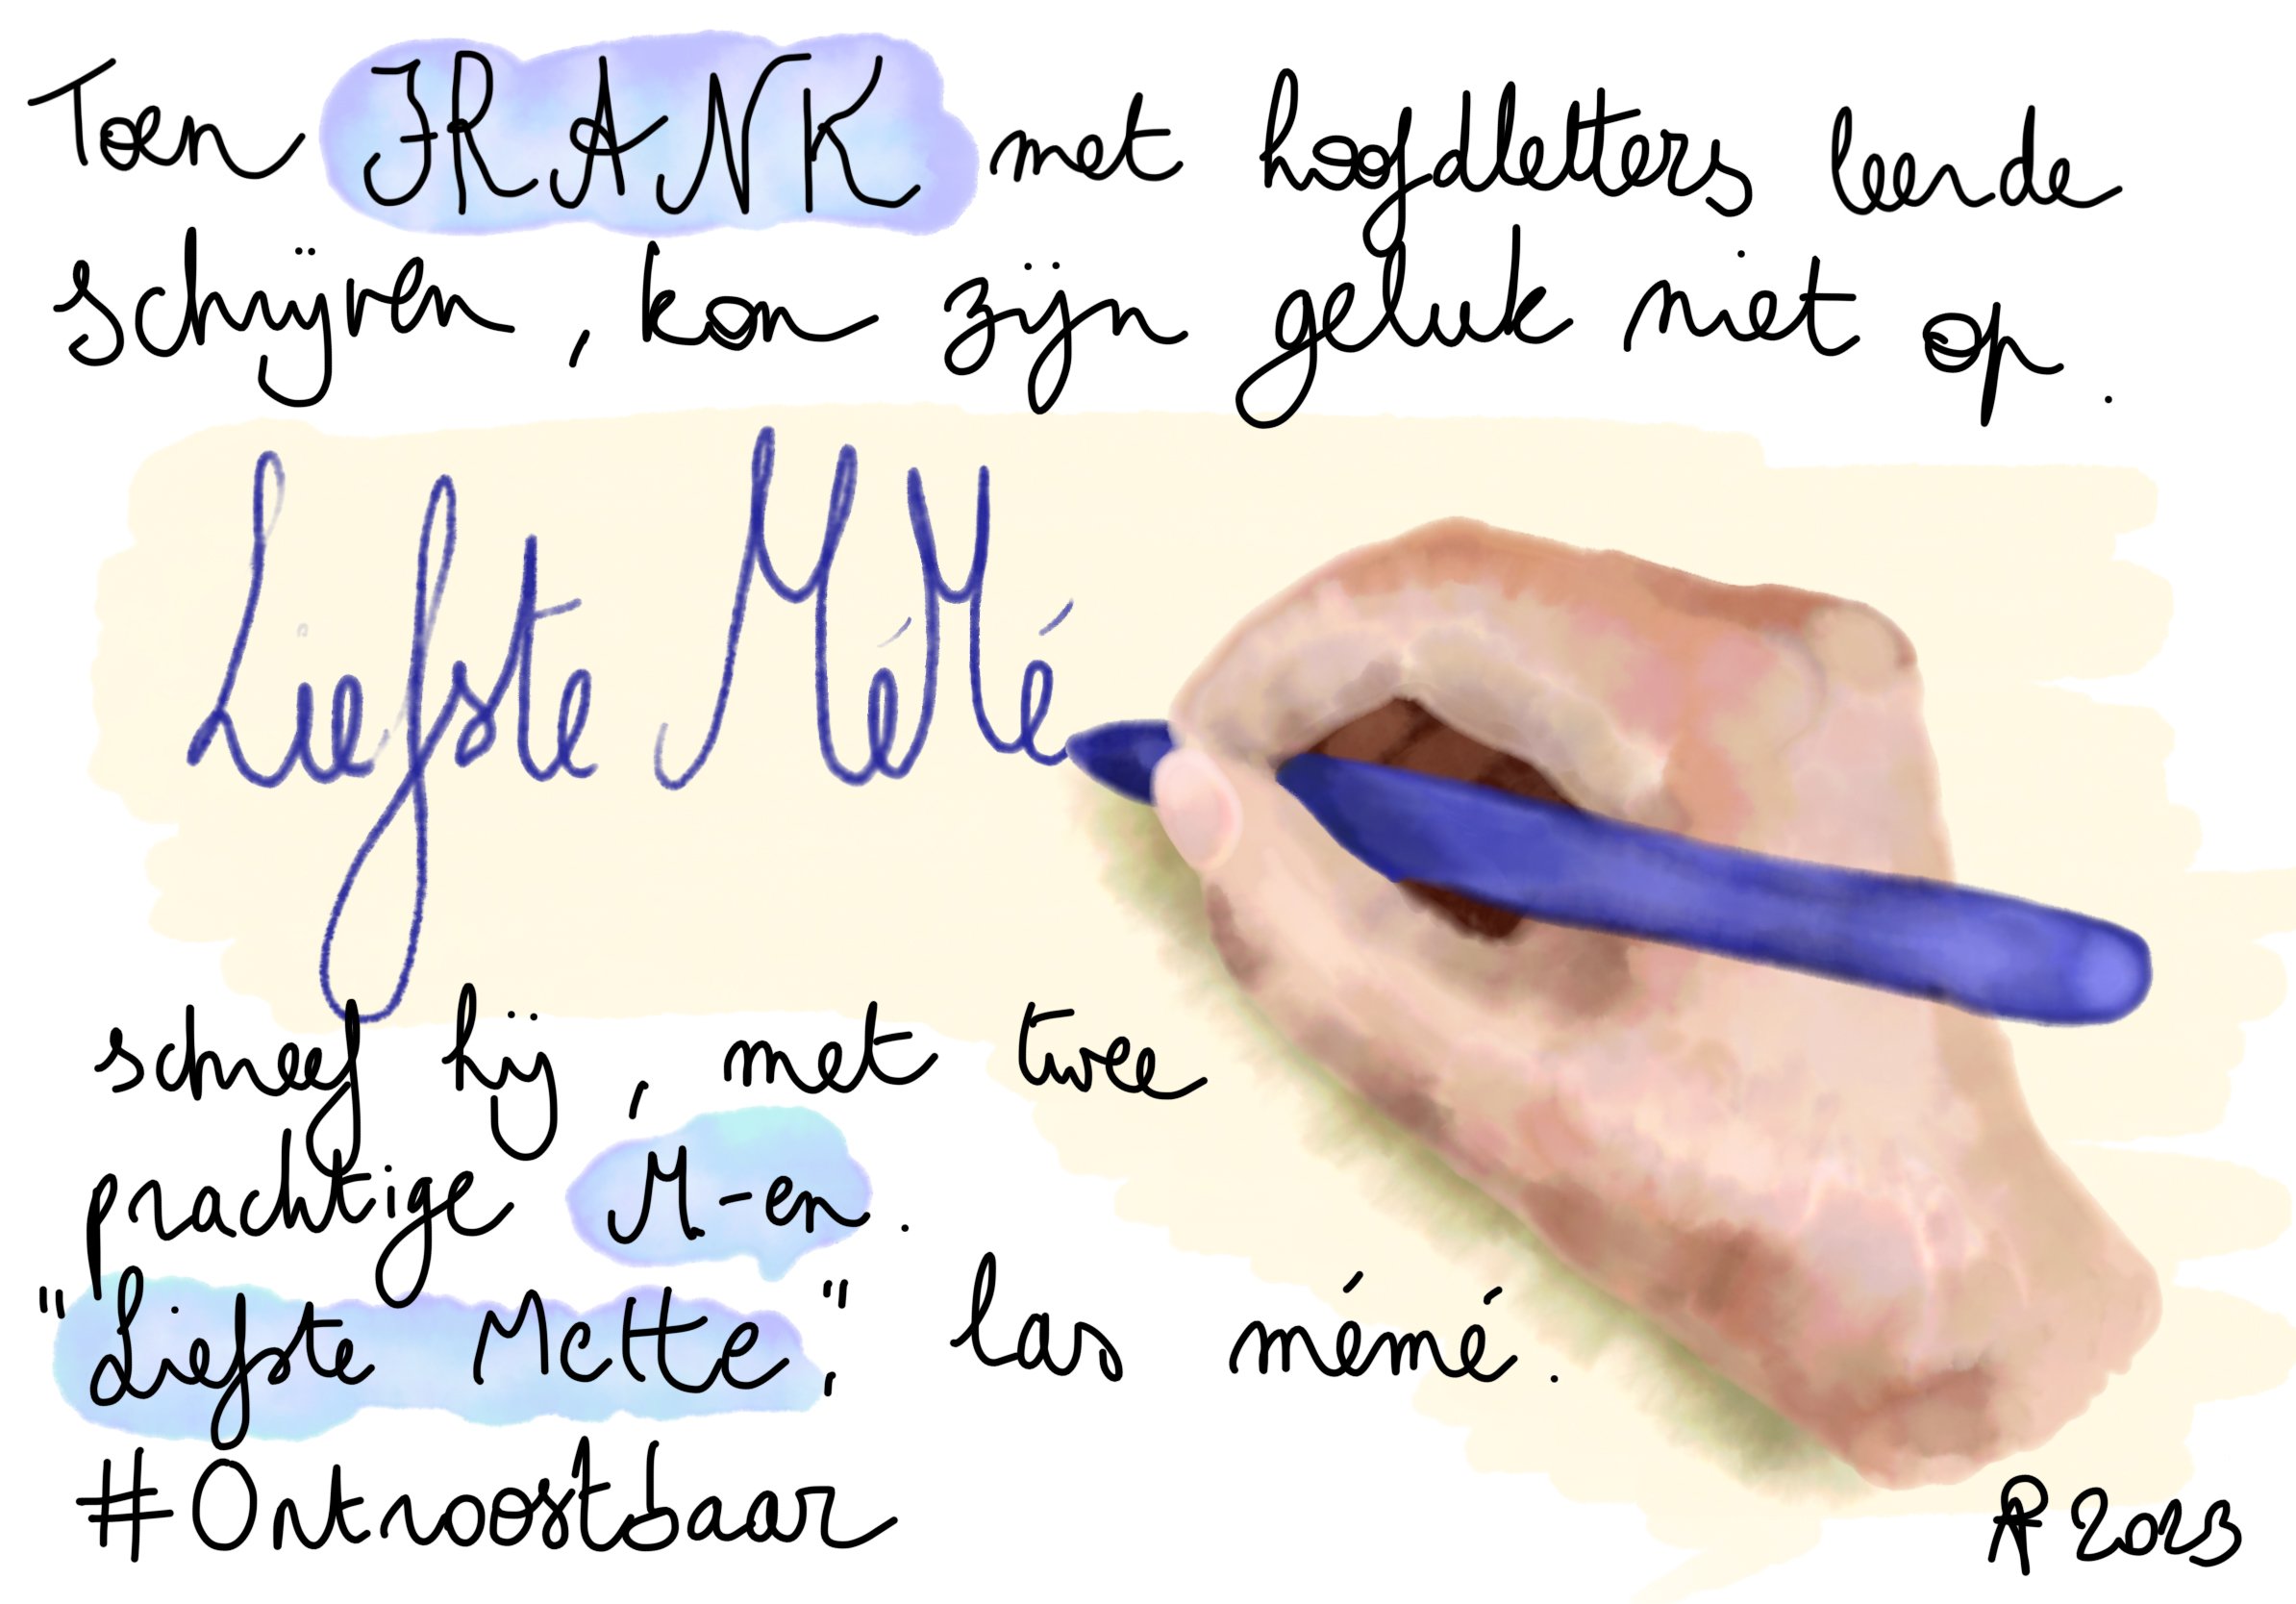 Toen FRANK met hoofdletters leerde
schrijven, kon zijn geluk niet op.
Liefste MéMé
schreef hij, met twee
prachtige M-en.
"Liefste Mette," las mémé.
#Ontroostbaar
2023